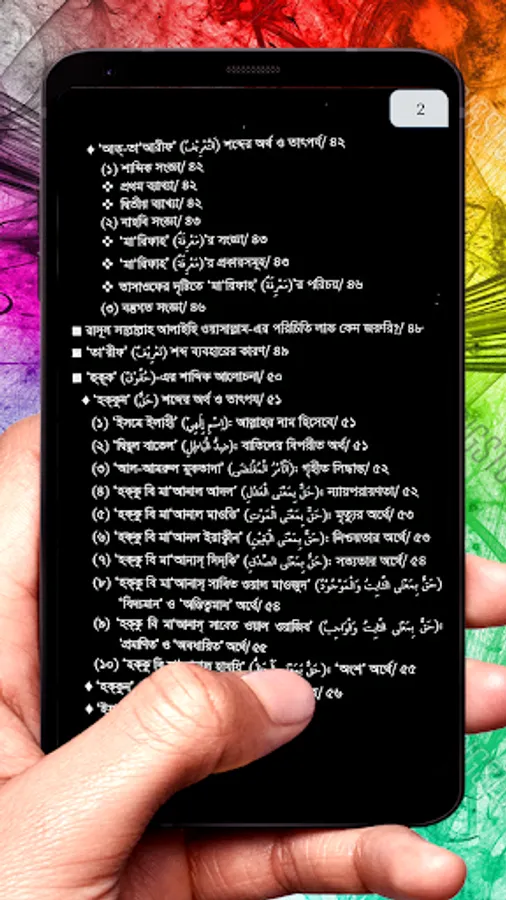 2
♦ 'আত্-তা'আরীফ' (اَلتَّعْرِيْفُ) শব্দের অর্থ ও তাৎপর্য/ ৪২
(১) শাব্দিক সংজ্ঞা/ ৪২
❖ প্রথম ব্যাখ্যা/ ৪২
❖ দ্বিতীয় ব্যাখ্যা/ ৪২
(২) নাহবি সংজ্ঞা/ ৪৩
❖ 'মা'রিফাহ' (مَعْرِفَةٌ)'র সংজ্ঞা/ ৪৩
❖ 'মা'রিফাহ' (مَعْرِفَةٌ)'র প্রকারসমূহ/ ৪৩
❖ তাসাওফের দৃষ্টিতে 'মা'রিফাহ' (مَعْرِفَةٌ)'র পরিচয়/ ৪৬
(৩) বস্তুগত সংজ্ঞা/ ৪৬
■ রাসূল সাল্লাল্লাহু আলাইহি ওয়াসাল্লাম-এর পরিচিতি লাভ কেন জরুরি?/ ৪৮
■ 'তা'রীফ' (تَعْرِيْفٌ) শব্দ ব্যবহারের কারণ/ ৪৯
■ 'হুকূক' (حُقُوْقٌ)-এর শাব্দিক আলোচনা/ ৫০
♦ 'হক্কুন' (حَقٌّ) শব্দের অর্থ ও তাৎপর্য/ ৫১
(১) 'ইসমে ইলাহী' (اِسْمِ اِلٰهِيْ): আল্লাহর নাম হিসেবে/ ৫১
(২) 'দ্বিদ্দুল বাতেল' (ضِدُّ الْبَاطِلِ): বাতিলের বিপরীত অর্থে/ ৫১
(৩) 'আল-আমরুল মুকতাদা' (اَلْاَمْرُ الْمُقْتَضٰى): গৃহীত সিদ্ধান্ত/ ৫২
(৪) 'হক্কু বি মা'আনাল আদল' (حَقٌّ بِمَعْنَى الْعَدْلِ): ন্যায়পরায়ণতা/ ৫২
(৫) 'হক্কু বি মা'আনাল মাওতি' (حَقٌّ بِمَعْنَى الْمَوْتِ): মৃত্যুর অর্থে/ ৫৩
(৬) 'হক্কু বি মা'আনল ইয়াক্বীন' (حَقٌّ بِمَعْنَى الْيَقِيْنِ): নিশ্চয়তার অর্থে/ ৫৩
(৭) 'হক্কু বি মা'আনাস্ সিদ্‌কি' (حَقٌّ بِمَعْنَى الصِّدْقِ): সত্যতার অর্থে/ ৫৪
(৮) 'হক্কু বি মা'আনাস্ সাবিত ওয়াল মাওজুদ' (حَقٌّ بِمَعْنَى الثَّابِتُ وَالْمَوْجُوْدُ)
'বিদ্যমান' ও 'অস্তিত্বমান' অর্থে/ ৫৪
(৯) 'হক্কু বি মা'আনাস্ সাবেত ওয়াল ওয়াজিব' (حَقٌّ بِمَعْنَى الثَّابِتُ وَالْوَاجِبُ):
'প্রমাণিত' ও 'অবধারিত' অর্থে/ ৫৫
(১০) 'হক্কু বি মা'আনাল (حَقٌّ بِمَعْنَى): 'অংশ' অর্থে/ ৫৫
♦ 'হক্কুন' / ৫৬